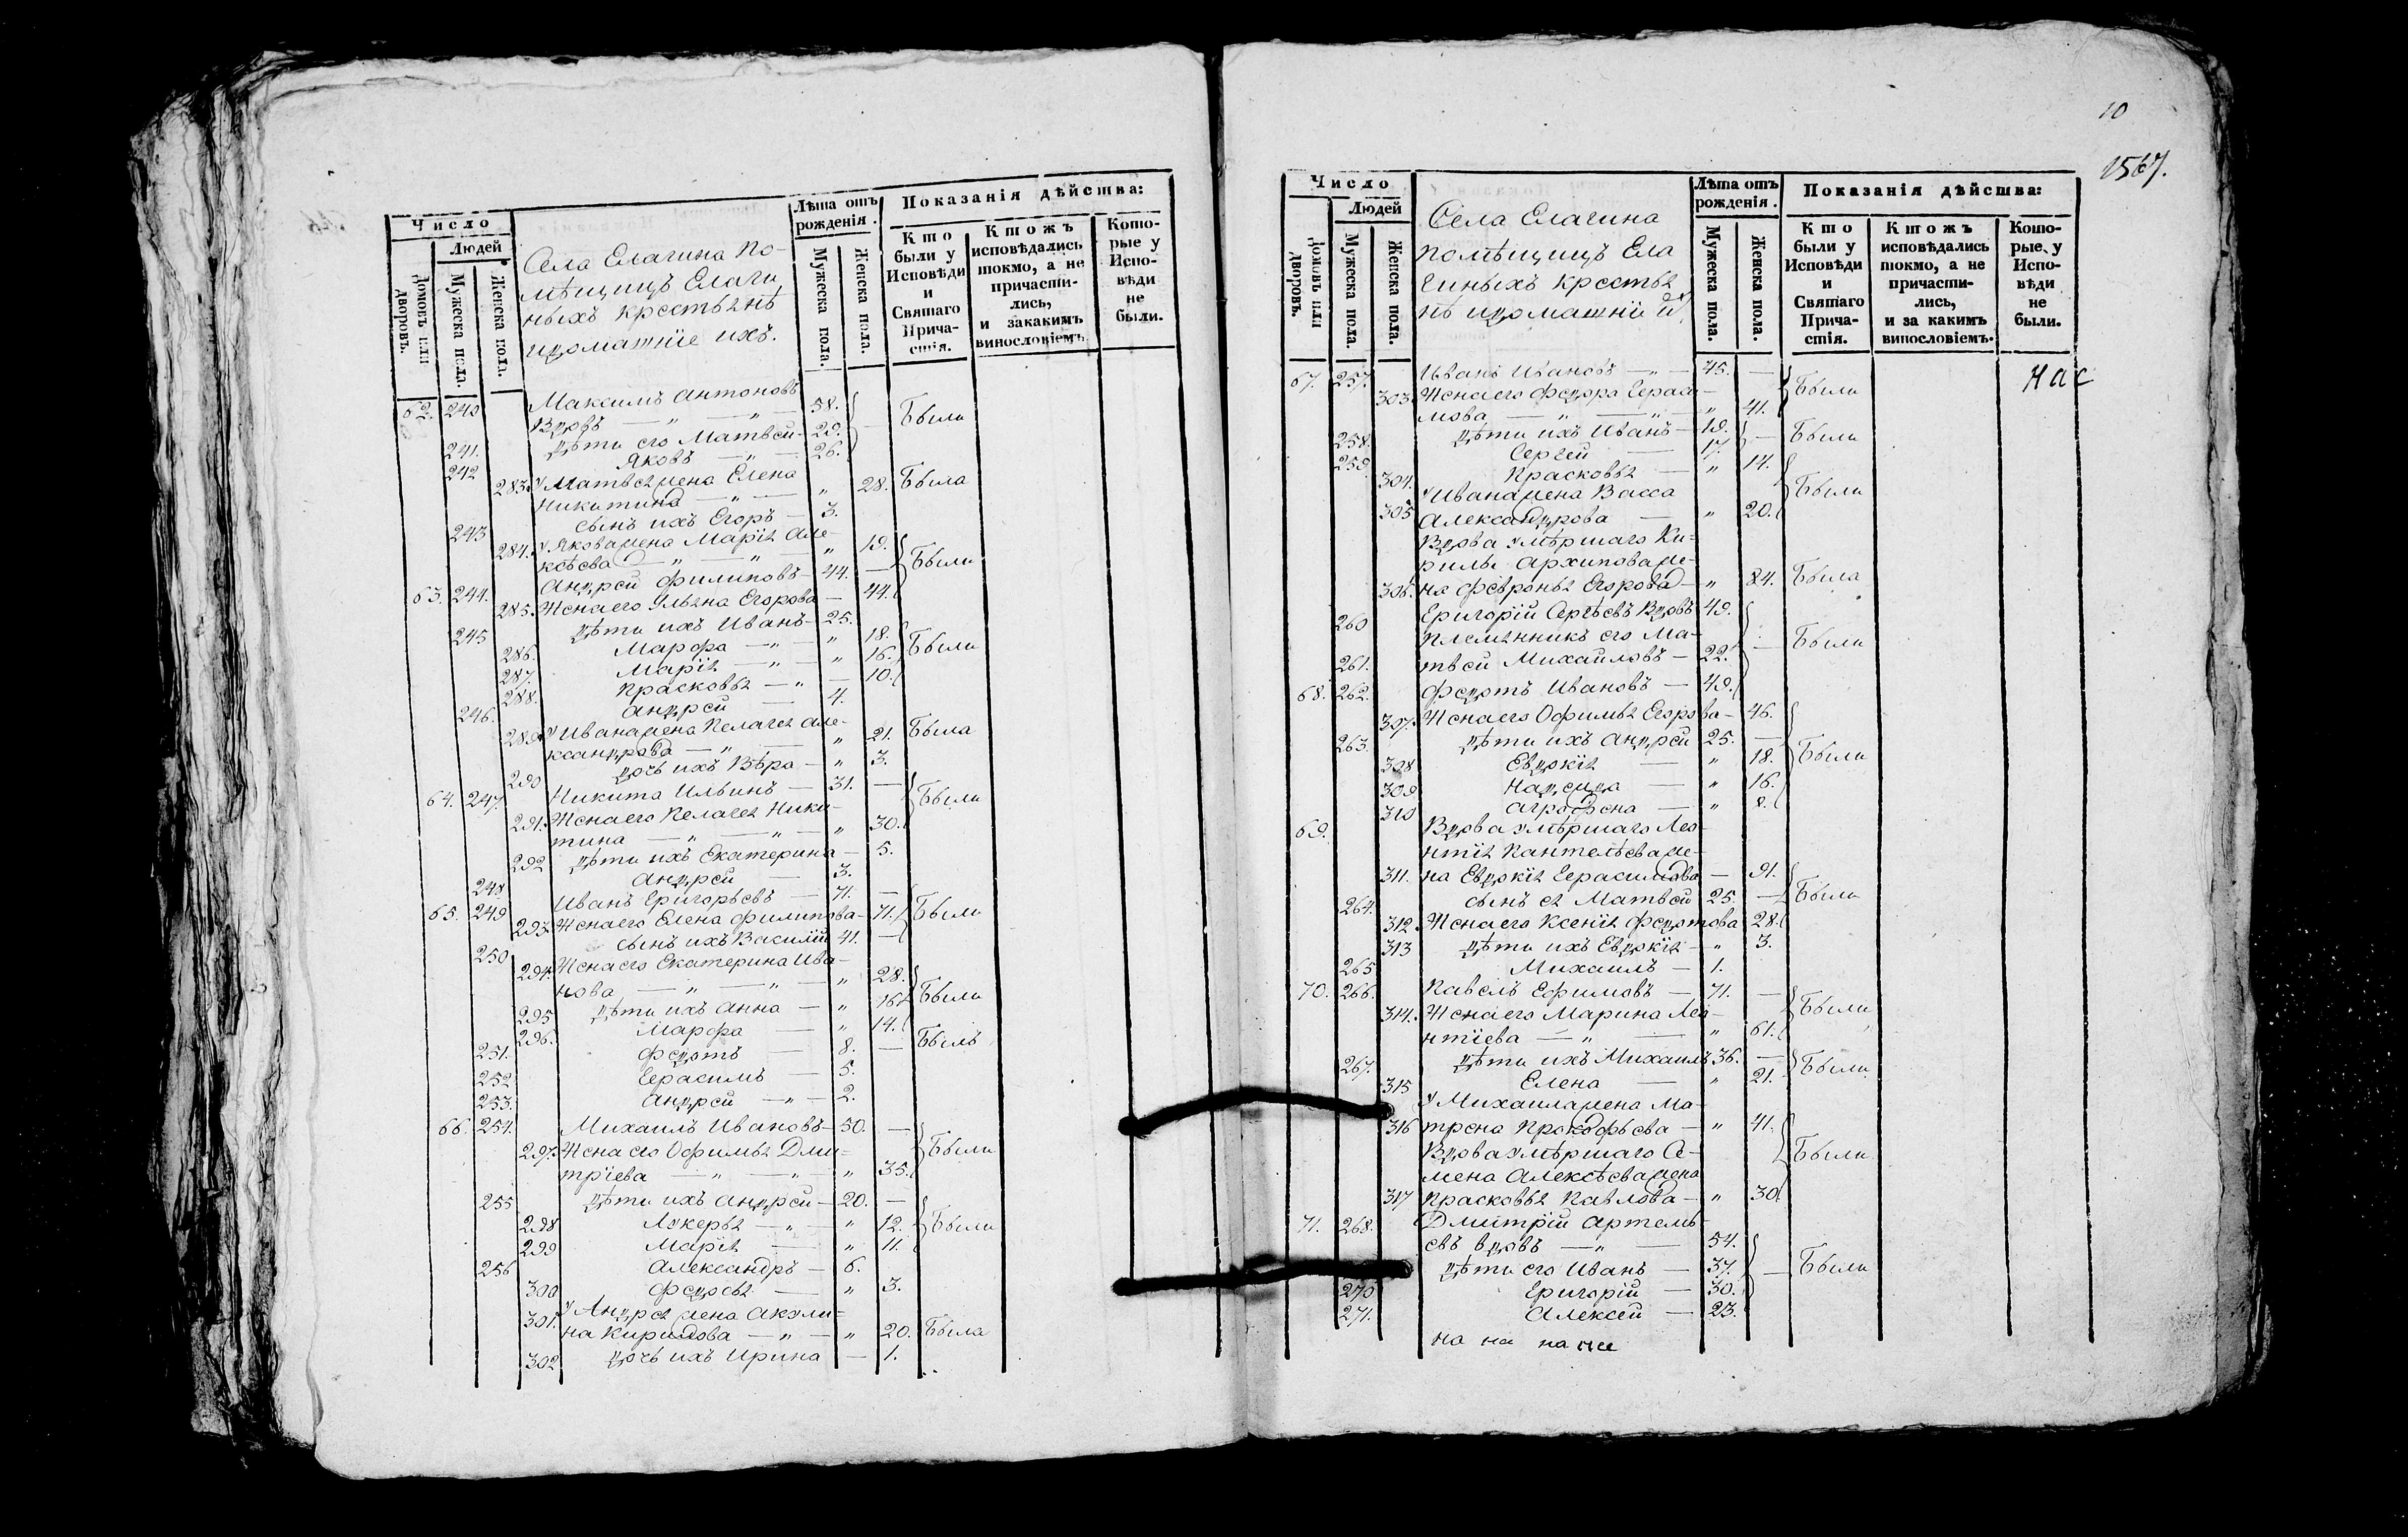 Число
Людей
Домовъ или дворовъ.
Мужеска пола.
Женска пола.
Села Елагина по-
мѣщицъ Елаги
ныхъ крестьянѣ
идоматніе ихъ.
Лѣта отъ рожденія.
Мужеска пола.
Женска пола.
Показанія дѣйства:
Кто были у Исповѣди и Святаго Прича-стія.
Ктожъ исповѣдались токмо, а не причасти-лись, и закакимъ винословіемъ.
Кото-рые у Испо-вѣди не были.
62. 240 Максимъ Антоновъ
Вдовъ — " — " — 58. Были
241. дѣти его Матвей — 29.
242 Яковъ — " — 26.
283. У Матвея жена Елена
Никитина — " — " 28. Была
243 сынъ ихъ Егоръ — 3.
284. У Якова жена Марія Але-
ксѣева — " — " — " 19. Были
63. 244. Андрей Филиповъ — 44. —
285. Жена его Ульяна Егорова — 44.
245 дѣти ихъ Иванъ — 25.
286. Марфа — " — " 18. Были
287. Марія — " — " 16.
288. Прасковья — " — 10.
246. Андрей — 4.
289. У Ивана жена Пелагея Але-
ксандрова — " — " 21. Была
290 дочь ихъ Вѣра — " 3.
64. 247. Никита Ильинъ — 31. — Были
291. Жена его Пелагея Ники-
тина — " — " — " 30.
292 дѣти ихъ Екатерина — 5.
248 Андрей — 3.
65. 249 Иванъ Григорьевъ — 71. —
293. Жена его Елена Филипова — 71. Были
250 сынъ ихъ Василій 41. —
294. Жена его Екатерина Ива-
нова — " — " — " 28.
295 дѣти ихъ Анна — " 16. Были
296. Марфа — " 14.
251. Федотъ — 8. — Былъ
252 Герасимъ — 5.
253. Андрей — " — 2.
66. 254. Михаилъ Ивановъ — 50. —
297. Жена его Офимья Дми-
тріева — " — " — " 35. Были
255 дѣти ихъ Андрей — 20. —
298 Лукерья — " — " 12. Были
299 Марія — " 11.
256 Александръ — 6.
300 Федосья — " 3.
301. У Андрея жена Акули-
на Кирилова — " — " 20. Была
302 дочь ихъ Ирина — 1.
10
1567.
Число
Людей
Домовъ или дворовъ.
Мужеска пола.
Женска пола.
Села Елагина
помѣщицъ Ела
гиныхъ крестья
нѣ идоматніи их.
Лѣта отъ рожденія.
Мужеска пола.
Женска пола.
Показанія дѣйства:
Кто были у Исповѣди и Святаго Прича-стія.
Ктожъ исповѣдались токмо, а не причасти-лись, и за какимъ винословіемъ.
Кото-рые у Испо-вѣди не были.
нас
67. 257. Иванъ Ивановъ — " — 45. —
303. Жена его Федора Гераси-
мова — " — " — " 41. Были
258. дѣти ихъ Иванъ — 19. — Были
259. Сергей — 17.
304. Прасковья — " 14.
У Ивана жена Васса
305 Александрова — " 20. Были
Вдова умѣршаго Ки-
рилы Архипова же-
306. на Февронья Егорова — " 84. Была
260 Григорій Сергѣевъ Вдовъ 49.
Племянникъ его Ма-
261. твей Михайловъ — 22. — Были
68. 262. Федотъ Ивановъ — 49.
307. Жена его Офимья Егорова — 46.
263. дѣти ихъ Андрей 25. —
308 Евдокія — " 18. Были
309 Надежда — " 16.
310 Аграфена — " 8.
69. Вдова умѣршаго Лео-
нтія Пантелѣева же-
311. на Евдокія Герасимова — 91.
264. сынъ ея Матвей 25. — Были
312. Жена его Ксенія Федотова 28.
313 дѣти ихъ Евдокія — " 3.
265 Михаилъ — 1.
70. 266. Павелъ Ефимовъ — 71. —
314. Жена его Марина Лео- Были
нтіева — " — " 61.
267. дѣти ихъ Михаилъ 36. —
315 Елена — " 21. Были
У Михаила жена Ма-
316 трена Прокофьева — " 41.
Вдова умѣршаго Се- Были
мена Алексѣева жена
317 Прасковья Павлова — " 30
71. 268. Дмитрій Артемь-
евъ вдовъ — " — 54.
дѣти его Иванъ — 37. — Были
270 Григорій — 30.
271. Алексей — 23.
на на на